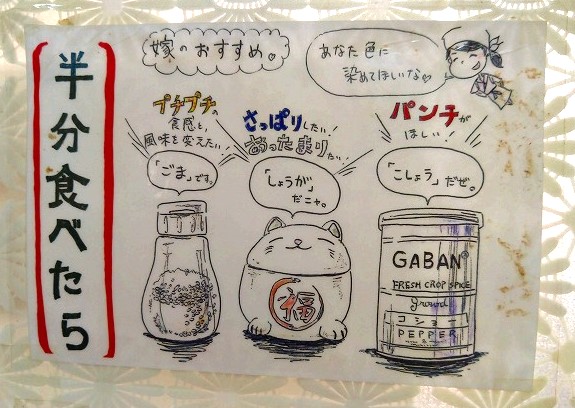 半分食べたら
嫁のおすすめ。
あなた色に
染めてほしいな♡
プチプチの
食感と、
風味を変えたい!
「ごま」です。
さっぱりしたい!
あったまりたい!
「しょうが」
だニャ。
パンチが
ほしい!
「こしょう」だぜ。
福
GABAN®
FRESH CROP SPICE
Ground
コショー
PEPPER